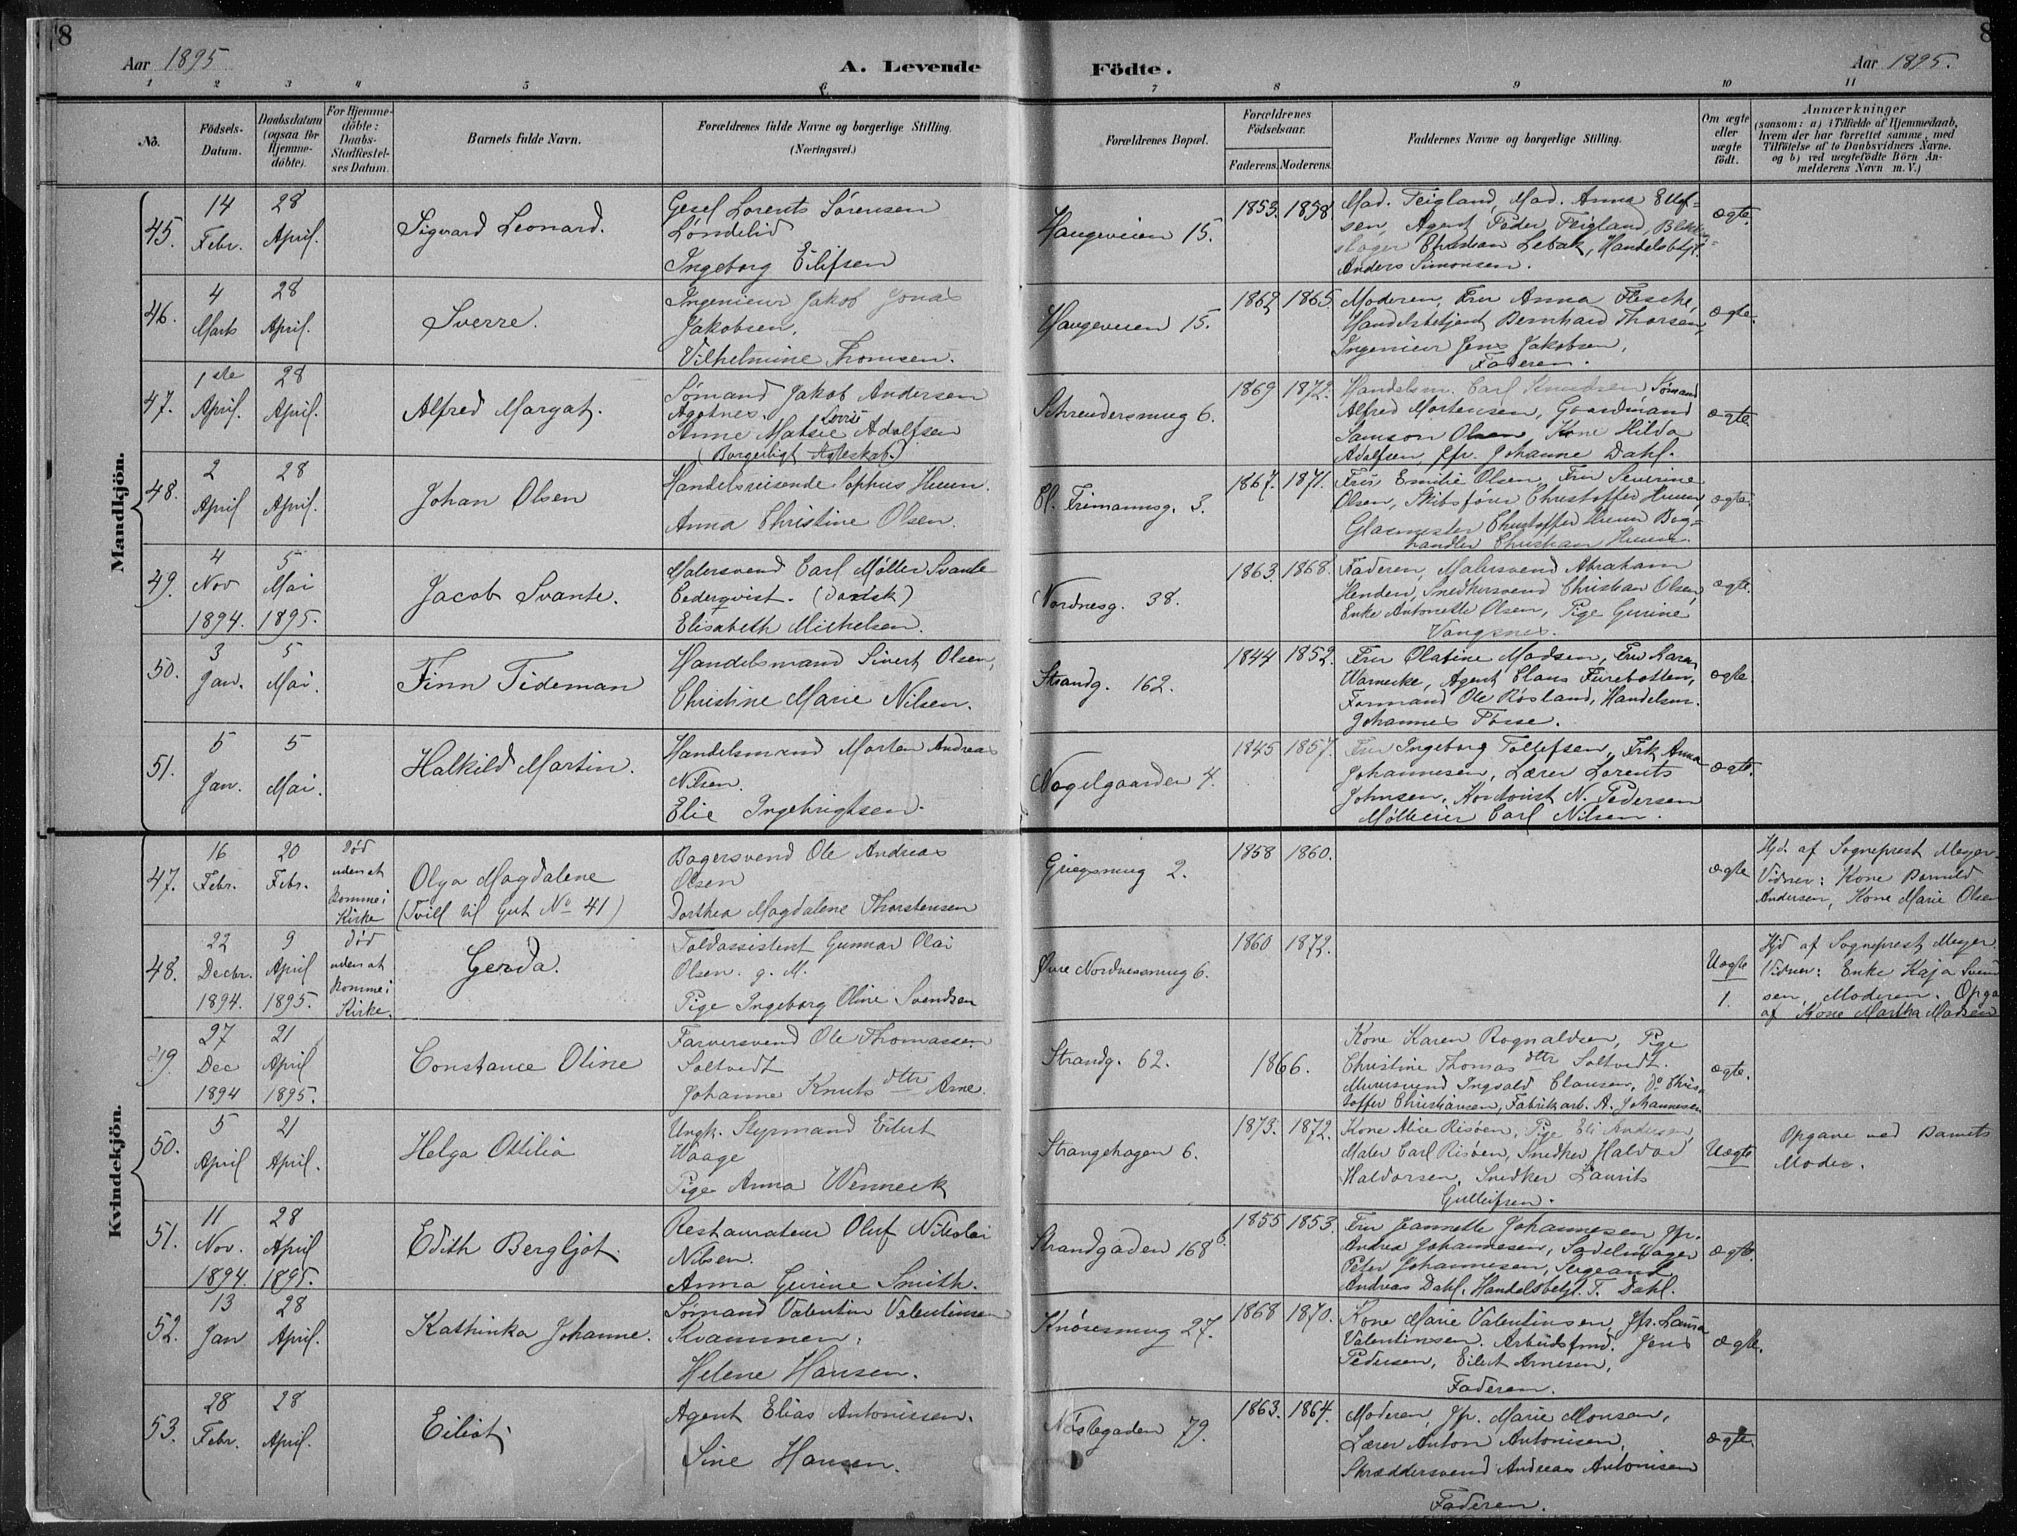 8
8
Aar 1895
A. Levende Födte.
Aar 1895.
1 2 3 4 5 6 7 8 9 10 11
No.
Födsels-
Datum.
Daabsdatum
(ogsaa for
Hjemme-
döbte).
For Hjemme-
döbte:
Daabs-
Stadfæstel-
ses Datum.
Barnets fulde Navn.
Forældrenes fulde Navne og borgerlige Stilling.
(Næringsvei.)
Forældrenes Bopæl.
Forældrenes
Födselsaar.
Faderens. Moderens.
Faddernes Navne og borgerlige Stilling.
Om ægte
eller
uægte
født.
Anmærkninger
(saasom: a) i Tilfælde af Hjemmedaab,
hvem der har forrettet samme, med
Tilföielse af to Daabsvidners Navne.
og b) ved uægtefödte Börn An-
melderens Navn m. V.)
Mandkjön.
45.
14
Febr.
28
April.
Sigvard Leonard.
Lorents Sørensen
Løndelid
Ingeborg Eilifsen
Haugeveien 15.
1853. 1858.
Mad. Teigland, Mad. Anna Ellef-
sen, Agent Peder Teigland,
Christian Lebak, Handelsbetjt.
Anders Simonsen.
ægte.
46.
4
Marts
28
April.
Sverre.
Ingenieur Jakob Jonas
Jakobsen.
Vilhelmine Thomsen.
Haugeveien 15.
1862 1865.
Moderen, Fru Anna Flesche,
Handelsbetjent Bernhard Thorsen,
Ingenieur Jens Jakobsen,
Faderen.
ægte.
47.
1ste
April.
28
April.
Alfred Margat.
Sømand Jakob Andersen
Agotnes.
Anne Matsie Lovise Adolfsen
(Borgerligt Ægteskab.)
Schreudersmug 6.
1869 1872.
Handelsm. Carl Knudsen, Sømand
Alfred Mortensen, Gaardmand
Samson Olsen, Kone Hilda
Adolfsen, Jfr. Johanne Dahl.
ægte.
48.
2
April
28
April.
Johan Olsen
Handelsreisende Sophus Huun.
Anna Christine Olsen.
Cl. Frimannsg. 3.
1867. 1871.
Frk. Emilie Olsen, Fru Severine
Olsen, Skibsfører Christoffer Huun,
Glasmester Christoffer Huun Bog=
handler Christian Huun.
ægte.
49.
4
Nov
1894.
5
Mai
1895.
Jacob Svante.
Malersvend Carl Møller Svante
Cederqvist. (Dansk)
Elisabeth Michelsen.
Nordnesg. 38.
1863. 1868.
Faderen, Malersvend Abraham
Henden, Snedkersvend Christian Olsen,
Enke Antonette Olsen, Pige Gurine
Vangsnes.
ægte.
50.
3
Jan.
5
Mai.
Finn Tideman
Handelsmand Sivert Olsen,
Christine Marie Nilsen.
Strandg. 162.
1844 1852.
Fru Olatine Madsen, Fru Karen
Warnecke, Agent Claus Furebotten,
Formand Ole Røsland, Handelsm.
Johannes Fosse.
ægte.
51.
5
Jan.
5
Mai.
Halkild Martin.
Handelsmand Morten Andreas
Nilsen.
Elie Ingebrigtsen.
Nagelgaarden 4.
1845 1857.
Fru Ingeborg Tollefsen, Frk Anna
Johannesen, Lærer Lorents
Johnsen, Kontorist N. Pedersen
Mølleeier Carl Nilsen.
ægte.
Kvindekjön.
47.
16
Febr.
20
Febr.
Død
uden at
komme i
Kirke
Olga Magdalene
(Tvill til Gut No 41)
Bagersvend Ole Andreas
Olsen
Dorthea Magdalene Thorstensen
Griegsmug 2.
1858 1860.
ægte
Hjd. af Sogneprest Meyer.
Vidner: Kone Barnild
Andersen, Kone Marie Olsen
48.
22
Decbr.
1894.
9
April
1895.
Død
uden at
komme i
Kirke.
Gerda.
Toldassistent Gunnar Olai
Olsen. g. M.
Pige Ingeborg Oline Svendsen
Øvre Nordnesmug 6.
1860 1872.
Uægte
1.
Hjd af Sogneprest Meyer.
Vidner: Enke Kaja Svend
sen, Moderen. Opga
af Kone Martha Madsen
49.
27
Dec
1894
21
April
1895.
Constance Oline
Farversvend Ole Thomassen
Soltvedt
Johanne Knutsdttr Arne.
Strandg. 62.
1866.
Kone Karen Ragnaldsen, Pige
Christine Thomasdttr Soltvedt.
Murersvend Ingvald Clausen, Do Chris
toffer Christiansen, Fabrikarb. A. Johannesen
ægte.
50.
5
April
21
April.
Helga Ottilia
Ungk. Styrmand Eilert
Waage
Pige Anna Wenneck
Strangehagen 6.
1873. 1872.
Kone Alice Risøen, Pige Eli Andersen,
Maler Carl Risøen, Snedker Haldor
Haldorsen, Snedker Laurits
Gulleifsen.
Uægte
Opgave ved Barnets
Moder.
51.
11
Nov.
1894
28
April
1895.
Edith Bergljot.
Restauratør Oluf Nikolai
Nilsen.
Anna Gurine Smith.
Strandgaden 168 b.
1855 1853.
Fru Jeannette Johannesen, Jfr.
Andrea Johannesen, Sadelmager
Peter Johannesen, Sergeant
Andreas Dahl, Handelsbetjt. T. Dahl.
ægte.
52.
13
Jan
28
April.
Kathinka Johanne.
Sømand Valentin Valentinsen
Kvammen,
Helene Hansen.
Knøsesmug 27.
1868 1870.
Kone Marie Valentinsen, Jfr. Laura
Valentinsen. Arbeidsfmd. Jens
Pedersen, Eilert Arnesen,
Faderen.
ægte.
53.
28
Febr.
28
April.
Eiliot.
Agent Elias Antonissen.
Sine Hansen.
Nøstegaden 79.
1863. 1864.
Moderen, Jfr. Marie Monsen,
Lærer Anton Antonisen,
Skræddersvend Andreas Antonisen
Faderen.
ægte.